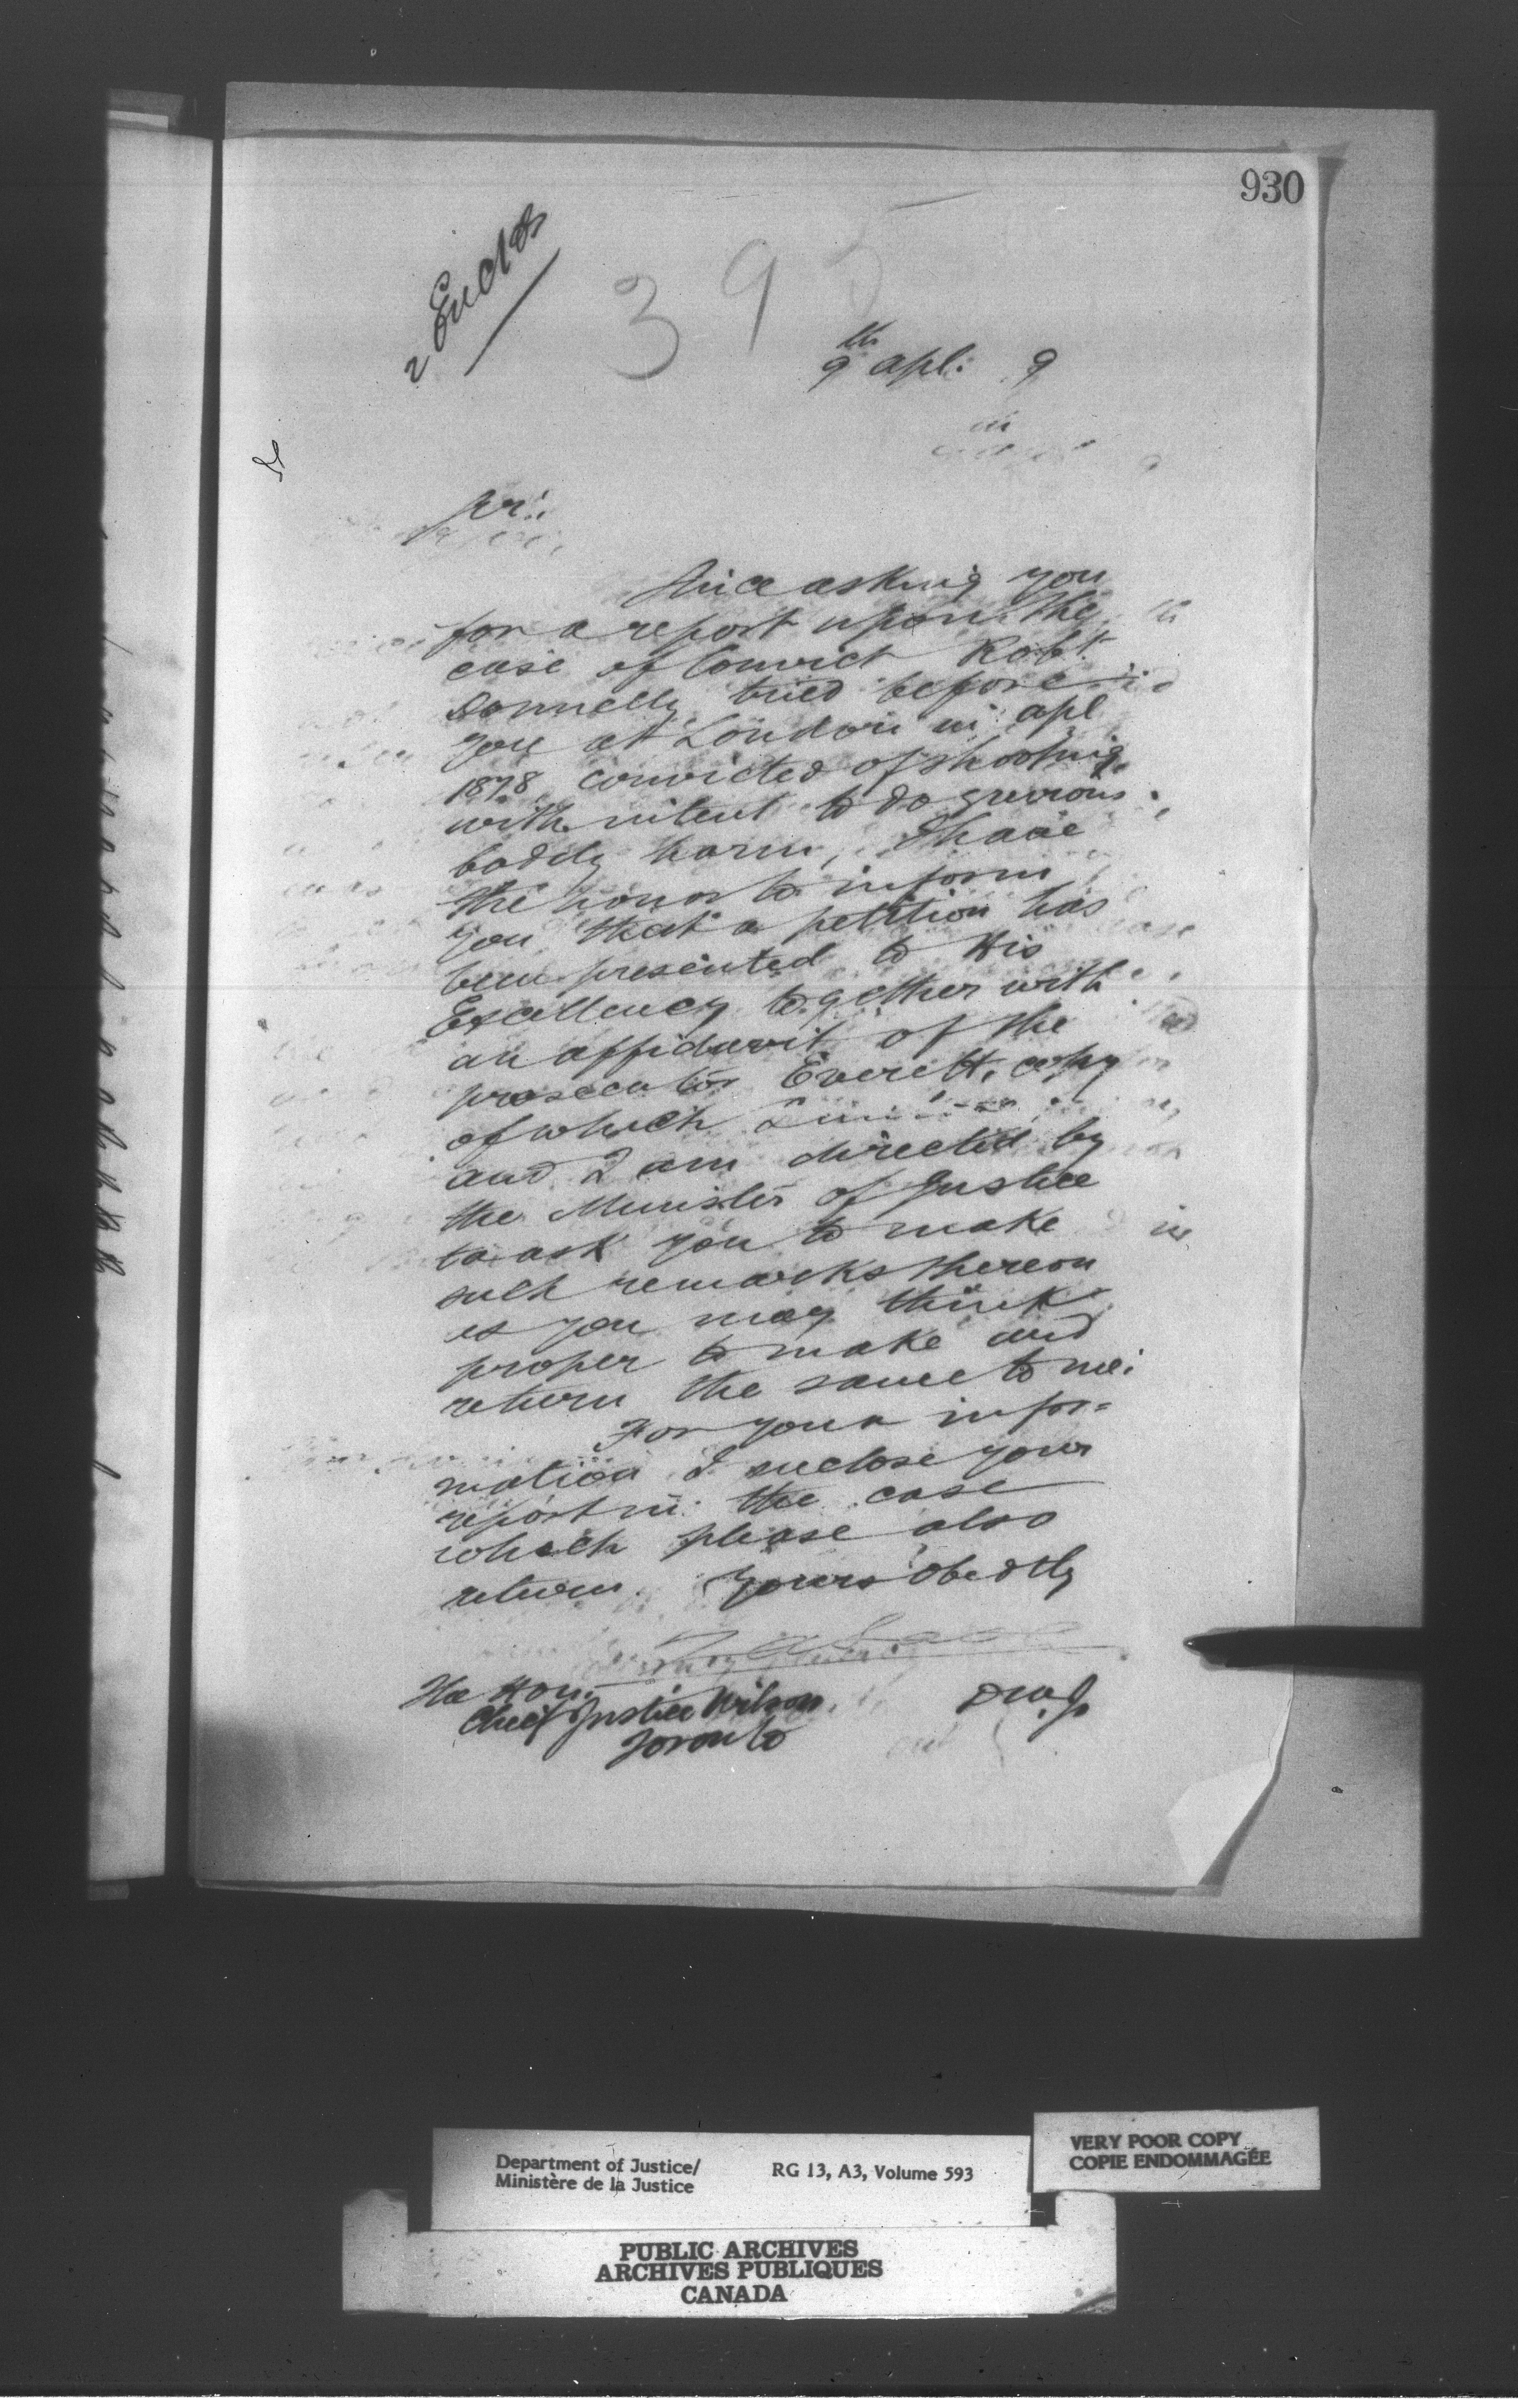 930
2 Encls
395
9th apl: 9
Sir:
Since asking you
for a report upon the
case of Convict Robt
Donnelly tried before
you at London in apl
1878, convicted of shooting
with intent to do grevious
bodily harm, I have
the honor to inform
you that a petition has
been presented to His
Excellency together with
an affidavit of the
prosecutor Everett, copy
of which I
and I am directed by
the Minister of Justice
to ask you to make
such remarks thereon
as you may think
proper to make and
return the same to me.
For your infor=
mation I enclose your
report in the case
which please also
return. Yours Obedtly
The Hon.
Chief Justice Wilson
Toronto
DMJ
Department of Justice/
Ministère de la Justice
RG 13, A3, Volume 593
VERY POOR COPY
COPIE ENDOMMAGÉE
PUBLIC ARCHIVES
ARCHIVES PUBLIQUES
CANADA